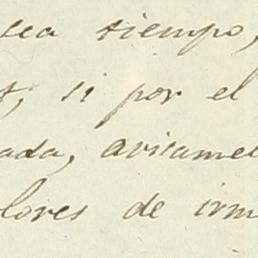 sea tiempo,
s, si por el
ada, avisame
lores de irm